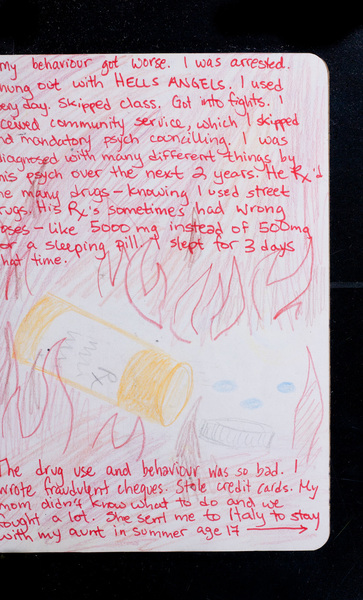 my behaviour got worse. I was arrested.
hung out with HELLS ANGELS. I used
ery day. Skipped class. Got into fights. I
ceived community service, which I skipped
nd mandatory psych councilling. I was
diagnosed with many different things by
his psych over the next 2 years. He Rx'd
me many drugs - knowing I used street
rugs. His Rx's sometimes had wrong
oses - like 5000 mg instead of 500mg
or a sleeping pill. I slept for 3 days
hat time.
Rx
The drug use and behaviour was so bad. I
wrote fraudulent cheques. Stole credit cards. My
mom didn't know what to do and we
fought a lot. She sent me to Italy to stay
with my aunt in summer age 17 →